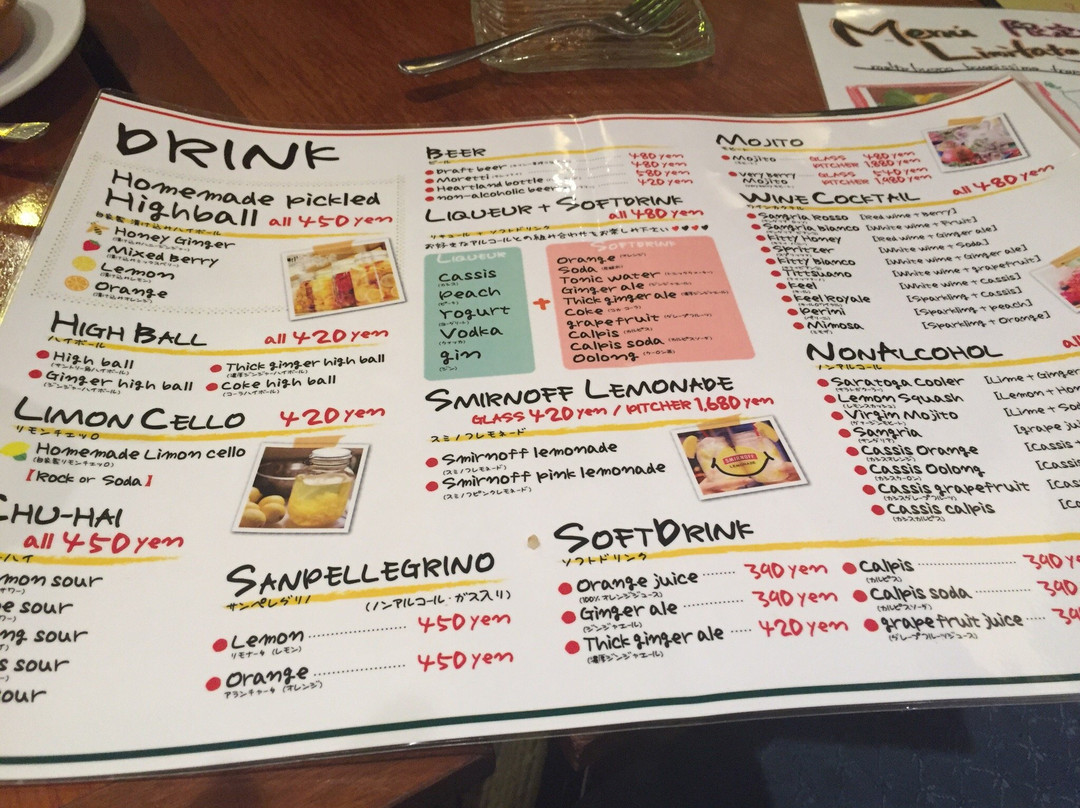 DRINK
Homemade pickled
Highball all 450 yen
自家製 漬け込みハイボール
Honey Ginger
Mixed Berry
Lemon
Orange
HIGH BALL all 420 yen
ハイボール
High ball
Ginger high ball
(ジンジャーハイボール)
Thick ginger high ball
(濃厚ジンジャーハイボール)
Coke high ball
(コークハイボール)
LIMON CELLO 420 yen
リモンチェッロ
Homemade Limon cello
(自家製リモンチェッロ)
【Rock or Soda】
CHU-HAI
all 450 yen
mon sour
e sour
ng sour
s sour
our
BEER
ビール
Draft beer 480 yen
Moretti 480 yen
Heartland bottle 580 yen
non-alcoholic beer 420 yen
LIQUEUR + SOFTDRINK
all 480 yen
リキュール + ソフトドリンク
お好きなアルコールとの組み合わせをお楽しみ下さい♥♥♥♥
LIQUEUR
Cassis
(カシス)
Peach
(ピーチ)
Yogurt
(ヨーグルト)
Vodka
(ウォッカ)
gin
(ジン)
+
SOFTDRINK
Orange (オレンジ)
Soda
Tonic water
Ginger ale
Thick ginger ale
Coke
grapefruit (グレープフルーツ)
Calpis (カルピス)
Calpis soda (カルピスソーダ)
Oolong (ウーロン茶)
SMIRNOFF LEMONADE
GLASS 420 yen / PITCHER 1,680 yen
スミノフレモネード
Smirnoff lemonade
(スミノフレモネード)
Smirnoff pink lemonade
(スミノフピンクレモネード)
SMIRNOFF
LEMONADE
SANPELLEGRINO
サンペレグリノ (ノンアルコール・ガス入り)
Lemon 450 yen
リモナータ (レモン)
Orange 450 yen
アランチャータ (オレンジ)
MOJITO
モヒート
Mojito GLASS 480 yen
PITCHER 1,880 yen
Very Berry Mojito GLASS 540 yen
PITCHER 1,980 yen
WINE COCKTAIL all 480 yen
ワインカクテル
Sangria Rosso [Red wine + Berry]
Sangria Bianco [White wine + Fruit]
Fitty Honey [Red wine + Ginger]
Spritzer [White wine + Soda]
Fitty Bianco [White wine + Ginger ale]
[White wine + grapefruit]
Keel [White wine + Cassis]
Keel Royale [Sparkling + Cassis]
Perimi [Sparkling + peach]
Mimosa [Sparkling + Orange]
NONALCOHOL al
ノンアルコール
Saratoga Cooler [Lime + Ginger
Lemon Squash [Lemon + Hon
Virgin Mojito [Lime + So
Sangria [grape jui
Cassis Orange [Cassis +
Cassis Oolong [Cassis
Cassis grapefruit [Cass
Cassis calpis [Ca
SOFTDRINK
ソフトドリンク
Orange juice 390 yen
(100% オレンジジュース)
Ginger ale 390 yen
(ジンジャエール)
Thick ginger ale 420 yen
(濃厚ジンジャエール)
Calpis 390 yen
(カルピス)
Calpis soda 390
(カルピスソーダ)
grape fruit juice 39
(グレープフルーツジュース)
Menú 限定
Limitato